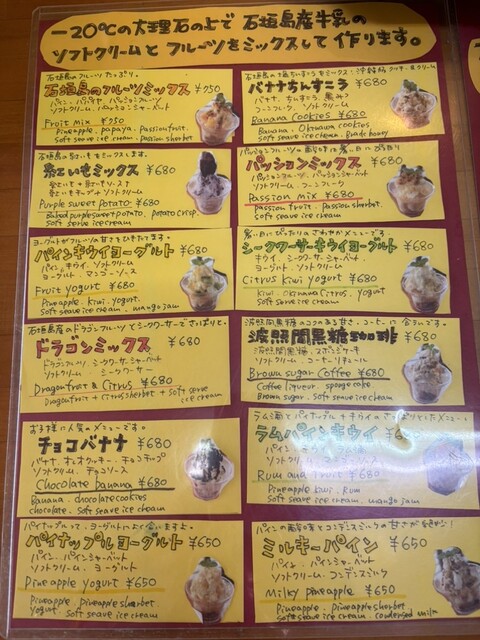 -20℃の大理石の上で 石垣島産牛乳の
ソフトクリームと フルーツをミックスして 作ります。
石垣島のフルーツたっぷり。
石垣島のフルーツミックス ¥750
パイン、パパイヤ、パッションフルーツ
ソフトクリーム、パッションシャーベット
Fruit Mix ¥750
Pineapple, papaya, Passionfruit,
Soft serve ice cream, passion sherbet
バナナちんすこう ¥680
バナナ、ちんすこう、黒みつ
コーンフレーク、ソフトクリーム
Banana Cookies ¥680
Banana, Okinawa cookies
Soft serve ice cream
石垣島の紅いもをミックスします。
紅いもミックス ¥680
Purple sweet potato ¥680
Baked purple sweet potato, potato crisp,
Soft serve ice cream
パッションミックス ¥680
パッションフルーツ、パッションシャーベット
ソフトクリーム、コーンフレーク
Passion mix ¥680
passion fruit, passion sherbet,
Soft serve ice cream
ヨーグルトがフルーツの甘さをひきたてます。
パインキウイヨーグルト ¥680
パイン、キウイ、ソフトクリーム
ヨーグルト、マンゴーソース
Fruit yogurt ¥680
Pineapple, kiwi, yogurt,
Soft serve ice cream, mango jam
暑い日にぴったりのさわやかメニューです。
シークワーサーキウイヨーグルト ¥680
キウイ、シークワーサーシャーベット
ヨーグルト、ソフトクリーム
Citrus kiwi yogurt ¥680
kiwi, Okinawa Citrus, yogurt
Soft serve ice cream
石垣島産のドラゴンフルーツとシークワーサーでさっぱりと。
ドラゴンミックス ¥680
ドラゴンフルーツ、シークワーサーシャーベット
ソフトクリーム、シークワーサー
Dragonfruit & Citrus ¥680
Dragonfruit + Citrus sherbet + Soft serve
ice cream
波照間黒糖のコクのある甘さ、コーヒーに合うんです。
波照間黒糖珈琲 ¥680
波照間黒糖、スポンジケーキ
ソフトクリーム、コーヒーリキュール
Brown sugar Coffee ¥680
Coffee liqueur, sponge cake
Brown sugar, Soft serve ice cream
お子様に人気のメニューです。
チョコバナナ ¥680
バナナ、オレオクッキー、チョコチップ
ソフトクリーム、チョコソース
Chocolate banana ¥680
Banana, chocolate cookies
chocolate, Soft serve ice cream
ラムパインキウイ
Rum and fruit
Pineapple, kiwi, Rum
Soft serve ice cream, mango jam
パイナップルって、ヨーグルトによく合いますよ。
パイナップルヨーグルト ¥650
パイン、パインシャーベット
ソフトクリーム、ヨーグルト
Pineapple yogurt ¥650
Pineapple, pineapple sherbet,
yogurt, Soft serve ice cream
ミルキーパイン ¥650
パイン、パインシャーベット
ソフトクリーム、コンデンスミルク
Milky pineapple ¥650
Pineapple, pineapple sherbet
Soft serve ice cream, condensed milk